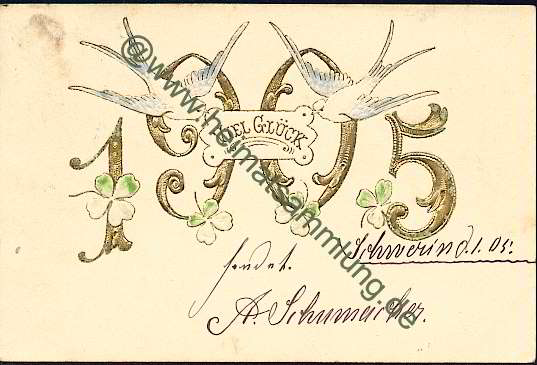 1905
VIEL GLÜCK
Schwerin d. 1. 05.
sendet.
A. Schumacher.
@www.heimatsammlung.de